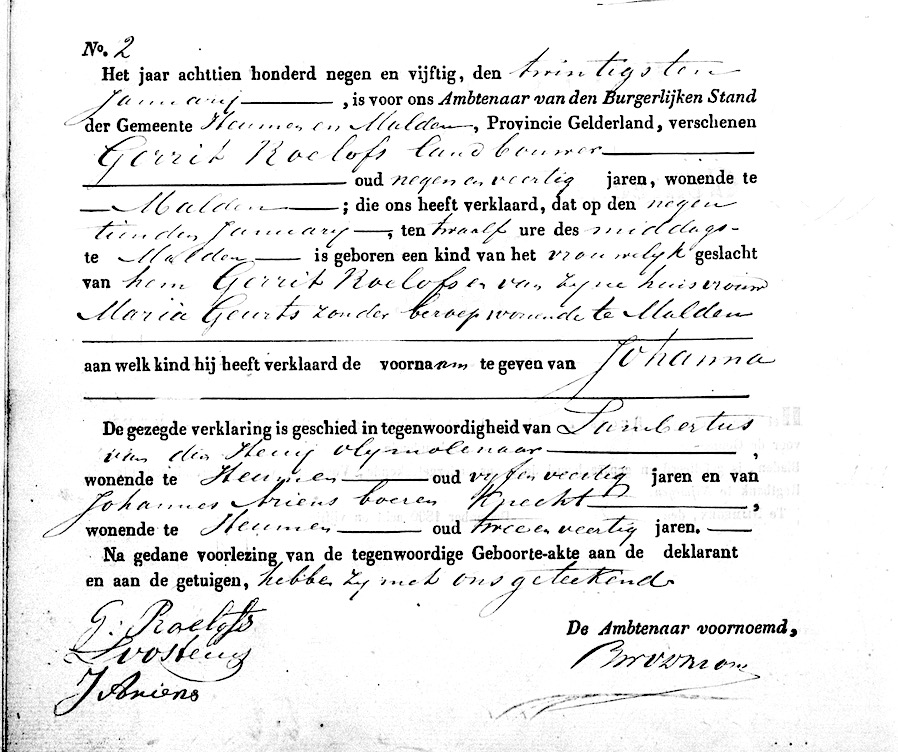 No. 2
Het jaar achttien honderd negen en vijftig, den twintigsten
January, is voor ons Ambtenaar van den Burgerlijken Stand
der Gemeente Heumen en Malden, Provincie Gelderland, verschenen
Gerrit Roelofs landbouwer
oud negen en veertig jaren, wonende te
Malden; die ons heeft verklaard, dat op den negen
tienden January, ten twaalf ure des middags
te Malden is geboren een kind van het vrouwelyk geslacht
van hem Gerrit Roelofs en van zyne huisvrouw
Maria Geurts zonder beroep wonende te Malden
aan welk kind hij heeft verklaard de voornaam te geven van Johanna
De gezegde verklaring is geschied in tegenwoordigheid van Lambertus
van den olymolenaar,
wonende te Heumen oud vyf en veertig jaren en van
Johannes Ariens boeren knecht,
wonende te Heumen oud twee en veertig jaren.
Na gedane voorlezing van de tegenwoordige Geboorte-akte aan de deklarant
en aan de getuigen, hebben zy met ons geteekend
G. Roelofs
De Ambtenaar voornoemd,
J Ariens